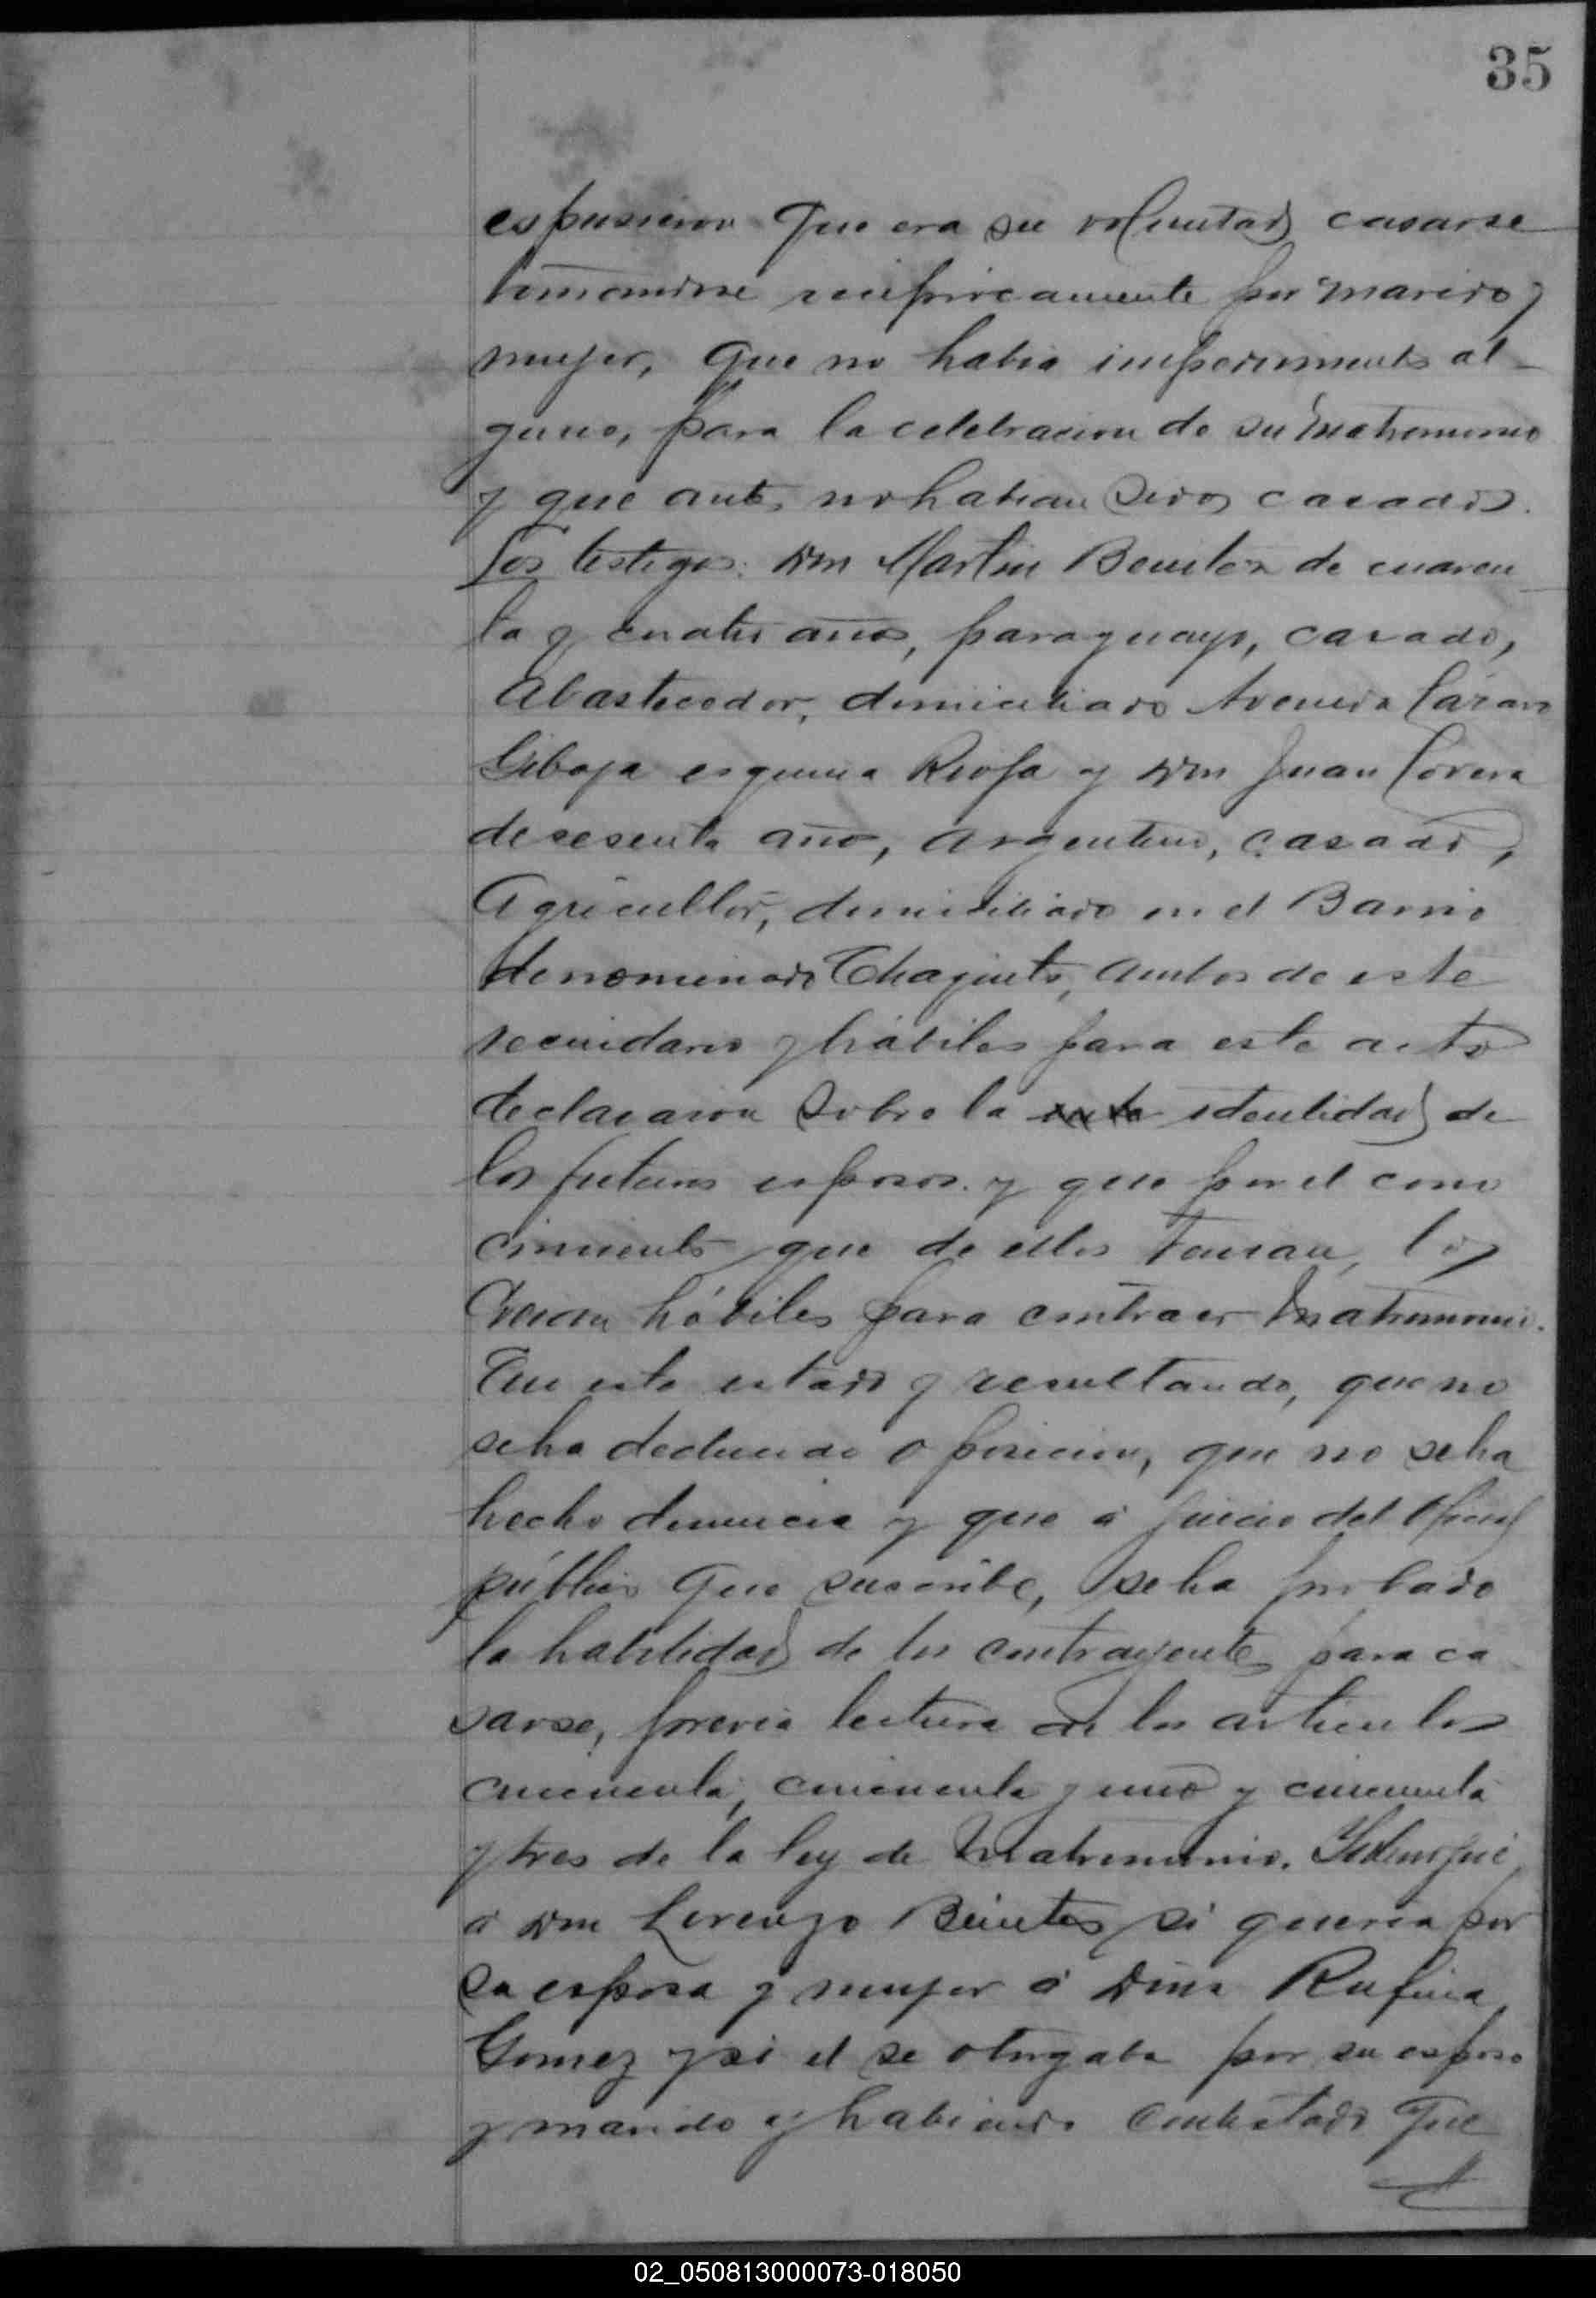 35
espusieron que era su voluntad casarse
tomandose recíprocamente por marido y
mujer, que no habia impedimento al-
guno, para la celebracion de su matrimonio
y que antes no habian sidos casados.
Los testigos: Don Martin Benitez de cuaren-
ta y cuatro años, paraguayo, casado,
Abastecedor, domiciliado Avenida Lázaro
Giboja esquina Rioja y Don Juan
de sesenta años, argentino, casado,
Agricultor, domiciliado en el Barrio
denominado ambos de este
vecindario y hábiles para este acto
declararon sobre la identidad de
los futuros esposos y que por el cono
cimiento que de ellos tenian, los
Creian hábiles para contraer Matrimonio.
En este estado y resultando, que no
se ha deducido oposicion, que no se ha
hecho denuncia y que á juicio del Oficial
público que suscribe, se ha probado
la habilidad de los contrayentes para ca
sarse, previa lectura de los articulos
cincuenta, cincuenta y uno y cincuenta
y tres de la ley de Matrimonio.
á Don Lorenzo Benites si queria por
su esposa y mujer á Doña Rufina
Gomez y si el se otorgaba por su esposo
y marido y habiendo contestado que
02_050813000073-018050